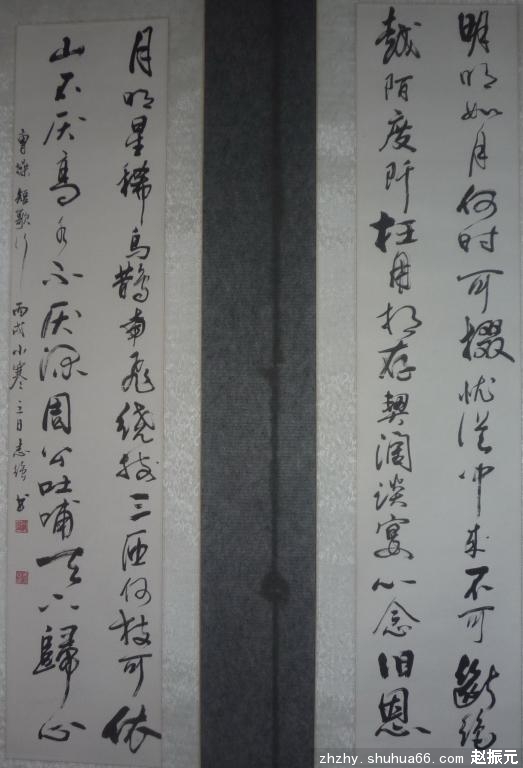 明明如月何时可掇忧從中来不可斷絶
越陌度阡枉用相存契阔谈宴心念旧恩
月明星稀烏鵲南飛绕树三匝何枝可依
山不厌高水不厌深周公吐哺天下歸心
曹操短歌行 丙戌小寒三日志
zhzhy.shuhua66.com 赵振元